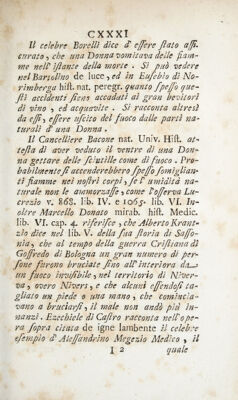 CXXXI
Il celebre Borelli dice d'essere stato assi-
curato, che una Donna vomitava delle fiam-
me nell'istante della morte. Si può vedere
nel Bartolino de luce, ed in Eusebio di No-
rimberga hist. nat. peregr. quanto spesso que-
sti accidenti sieno accaduti ai gran bevitori
di vino, ed acquavite. Si racconta altresì
da essi, essere uscito del fuoco dalle parti na-
turali d'una Donna.
Il Cancelliere Bacone nat. Univ. Hist. at-
testa di aver veduto il ventre di una Don-
na gettare delle scintille come di fuoco. Pro-
babilmente si accenderebbero spesso somiglian-
ti fiamme nei nostri corpi, se l'umidità na-
turale non le ammorzasse, come l'osserva Lu-
crezio v. 868. lib. IV. e 1065. lib. VI. In-
oltre Marcello Donato mirab. hist. Medic.
lib. VI. cap. 4. riferisce, che Alberto Krant-
zio dice nel lib. V. della sua storia di Sasso-
nia, che al tempo della guerra Cristiana di
Goffredo di Bologna un gran numero di per-
sone furono bruciate sino all'interiora da
un fuoco invisibile, nel territorio di Niver-
va, ovvero Nivers, e che alcuni essendosi ta-
gliato un piede o una mano, che comincia-
vano a bruciarsi, il male non andò più in-
nanzi. Ezechiele di Castro racconta nell'ope-
ra sopra citata de igne lambente il celebre
esempio d'Alessandrino Megezio Medico, il
I 2 quale